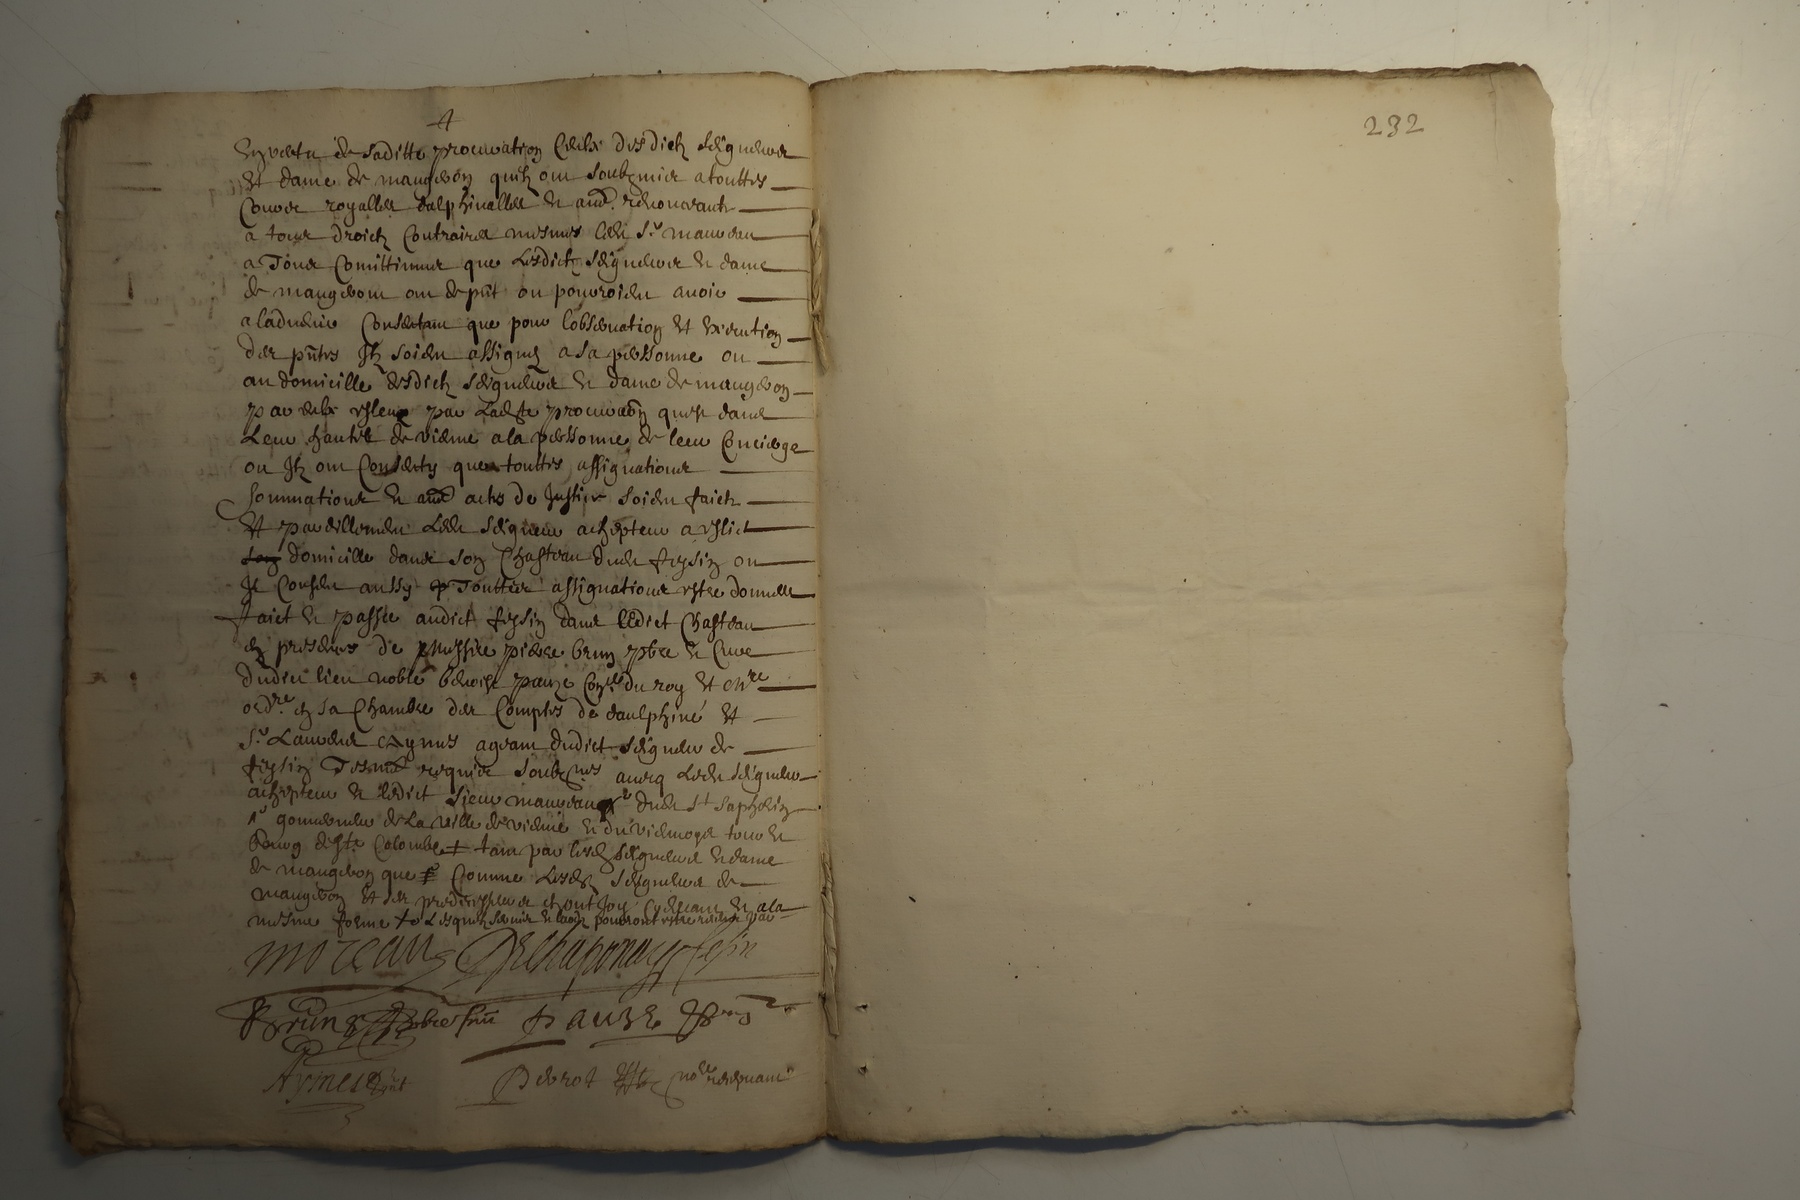 4
232
En vertu de saditte procuration Ceulx desdictz seigneur
Et dame de maugeron quilz ont soubzmis a touttes
Cours royalles dalphinalles et aues renonceants
a tous droictz Contraires mesmes ledt Sr maureau
a Tous Comittimus que Lesdictz seigneur et dame
de maugeron ont de pnt ou pourroient avoir
a ladvenir Consentant que pour lobservation Et Execution
des pntes Ilz soient assignez a la personne ou
au domicille desdictz seigneur et dame de maugeron
par eulx esleu par Ladte procuraon quest dans
Leur hautel de vienne a la personne de leur Concierge
ou Ilz ont Consenty que touttes assignations
sommations et aues actes de Justice soient faictz
Et pareillement Ledt seigneur achepteur a eslict
domicille dans son Chasteau dudt feysin ou
Il Consent aussy Touttes assignations estre donnees
faict et passe audict feysin dans ledict Chasteau
en presences de Messire pierre brun pbre et Cure
dudict lieu noble benoist pauze Conser du roy Et Mre
ordre en sa Chambre des Comptes de daulphiné Et
Sr Laurens Aymes agent dudict seigneur de
feysin Tesmoins requis soubznes avecq Ledt seigneur
achepteur et ledict sieur maureau dudt St saphorin
gouverneur de La ville de vienne et du viennoys tour et
bourg de Ste Colombe tant par lesdz seigneur et dame
de maugeron que Comme Lesdz seigneur de
maugeron Et ses predecesseurs et ont Joy Cydevant et a la
mesme forme Lesquelz pourront estre
moreau De Chaponay feysin
Brun pbre pnt pauze
Aymes pnt Perrot nore